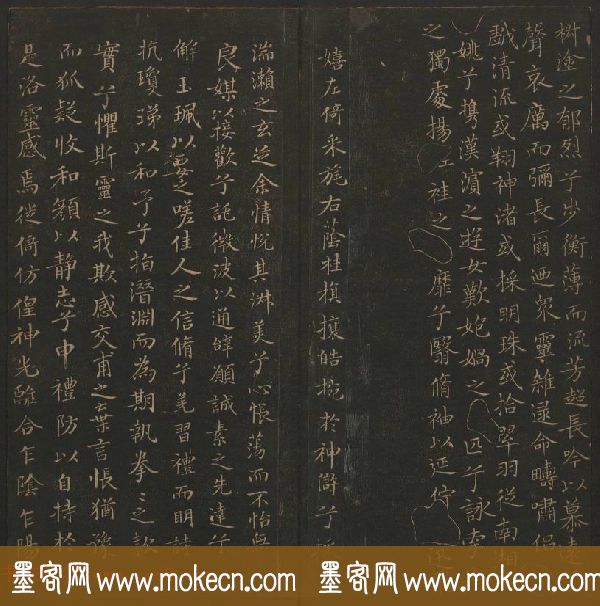 椒塗之郁烈兮步衡薄而流芳超長吟以慕遠
聲哀厲而彌長爾迺衆靈雜遝命疇嘯侶
戲清流或翔神渚或採明珠或拾翠羽從南湘
姚兮携漢濱之遊女歎匏媧之匹兮詠牽
之獨處揚輕袿之靡兮翳脩袖以延佇
嬉左倚采旄右蔭桂旗攘皓捥於神滸兮採
湍瀨之玄芝余情悅其淑美兮心悵蕩而不怡無
良媒以接歡兮託微波以通辭願誠素之先達兮
解玉珮以要之嗟佳人之信脩兮羌習禮而明詩
抗瓊珶以和予兮指潛淵而為期執拳〻之款
實兮懼斯靈之我欺感交甫之棄言悵猶豫
而狐疑收和顏以靜志兮申禮防以自持於
是洛靈感焉徙倚仿偟神光離合乍陰乍陽
墨客网 www.mokecn.com 墨客网 www.mokecn.com